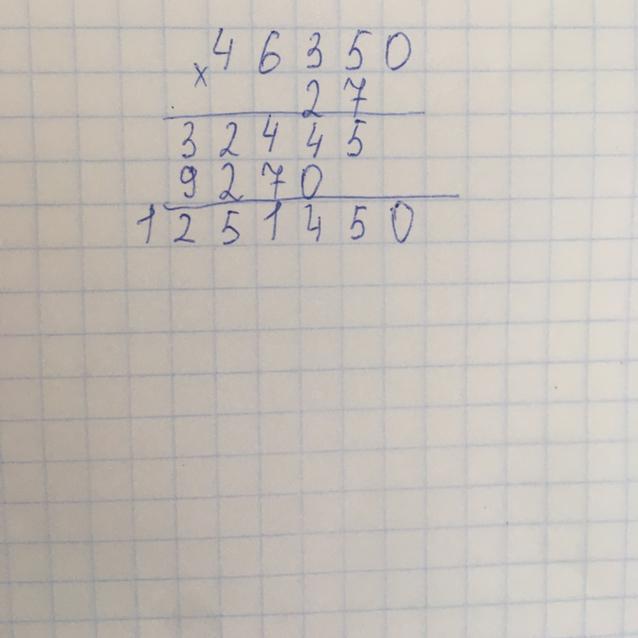 46350
×
27
32445
9270
1251450